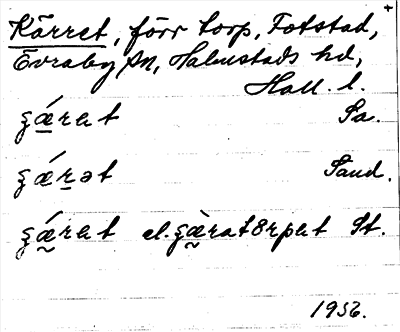 Kärret, förr torp, Totstad,
Evraby sn, Halmstads hd,
Hall. l.
ʒǽrət Sa.
ʒǽrət Sand.
ʒǽrət el. ʒæ̀rətørpət St.
1956.